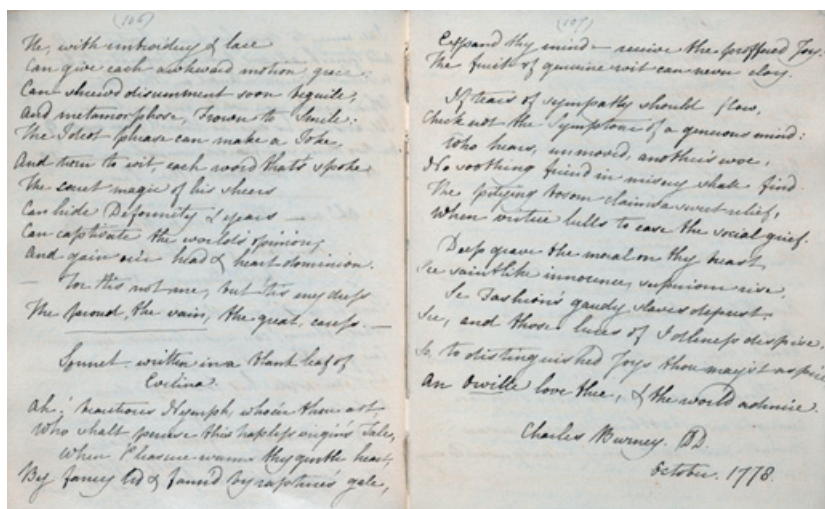 (106)
He, with embroidery & lace
Can give each awkward motion grace;
Can shrewd discernment soon beguile,
And metamorphose, Frown to Smile:
The Ideot phrase can make a Joke,
And turn to wit, each word that's spoke
The secret magic of his sheers
Can hide Deformity & years —
Can captivate the world's opinion,
And gain o'er head & heart dominion.
— For tis not me, but 'tis my dress
The proud, the vain, the great, caress. —
Sonnet written in a blank leaf of
Evelina.
Ah! beauteous Nymph, whoe'er thou art,
Who shalt peruse this hapless virgin's Tale,
When Pleasure warms thy gentle heart,
By fancy led & fann'd by rapture's gale,
(107)
Expand thy mind — receive the proffered Joy.
The fruits of genuine wit can never cloy.
If tears of sympathy should flow,
Check not the Symptoms of a generous mind:
Who hears, unmoved, another's woe,
No soothing friend in misery shall find.
The pitying bosom claims a sweet relief,
When virtue lulls to ease the social grief.
Deep grave the moral on thy breast,
See saintlike innocence, supreme rise,
See Fashion's gaudy slaves deprest,
See, and those lures of Idleness dispise,
So, to distinguished Joys thou may'st aspire
An Orville love thee, & the world admire.
Charles Burney. DD.
October. 1778.